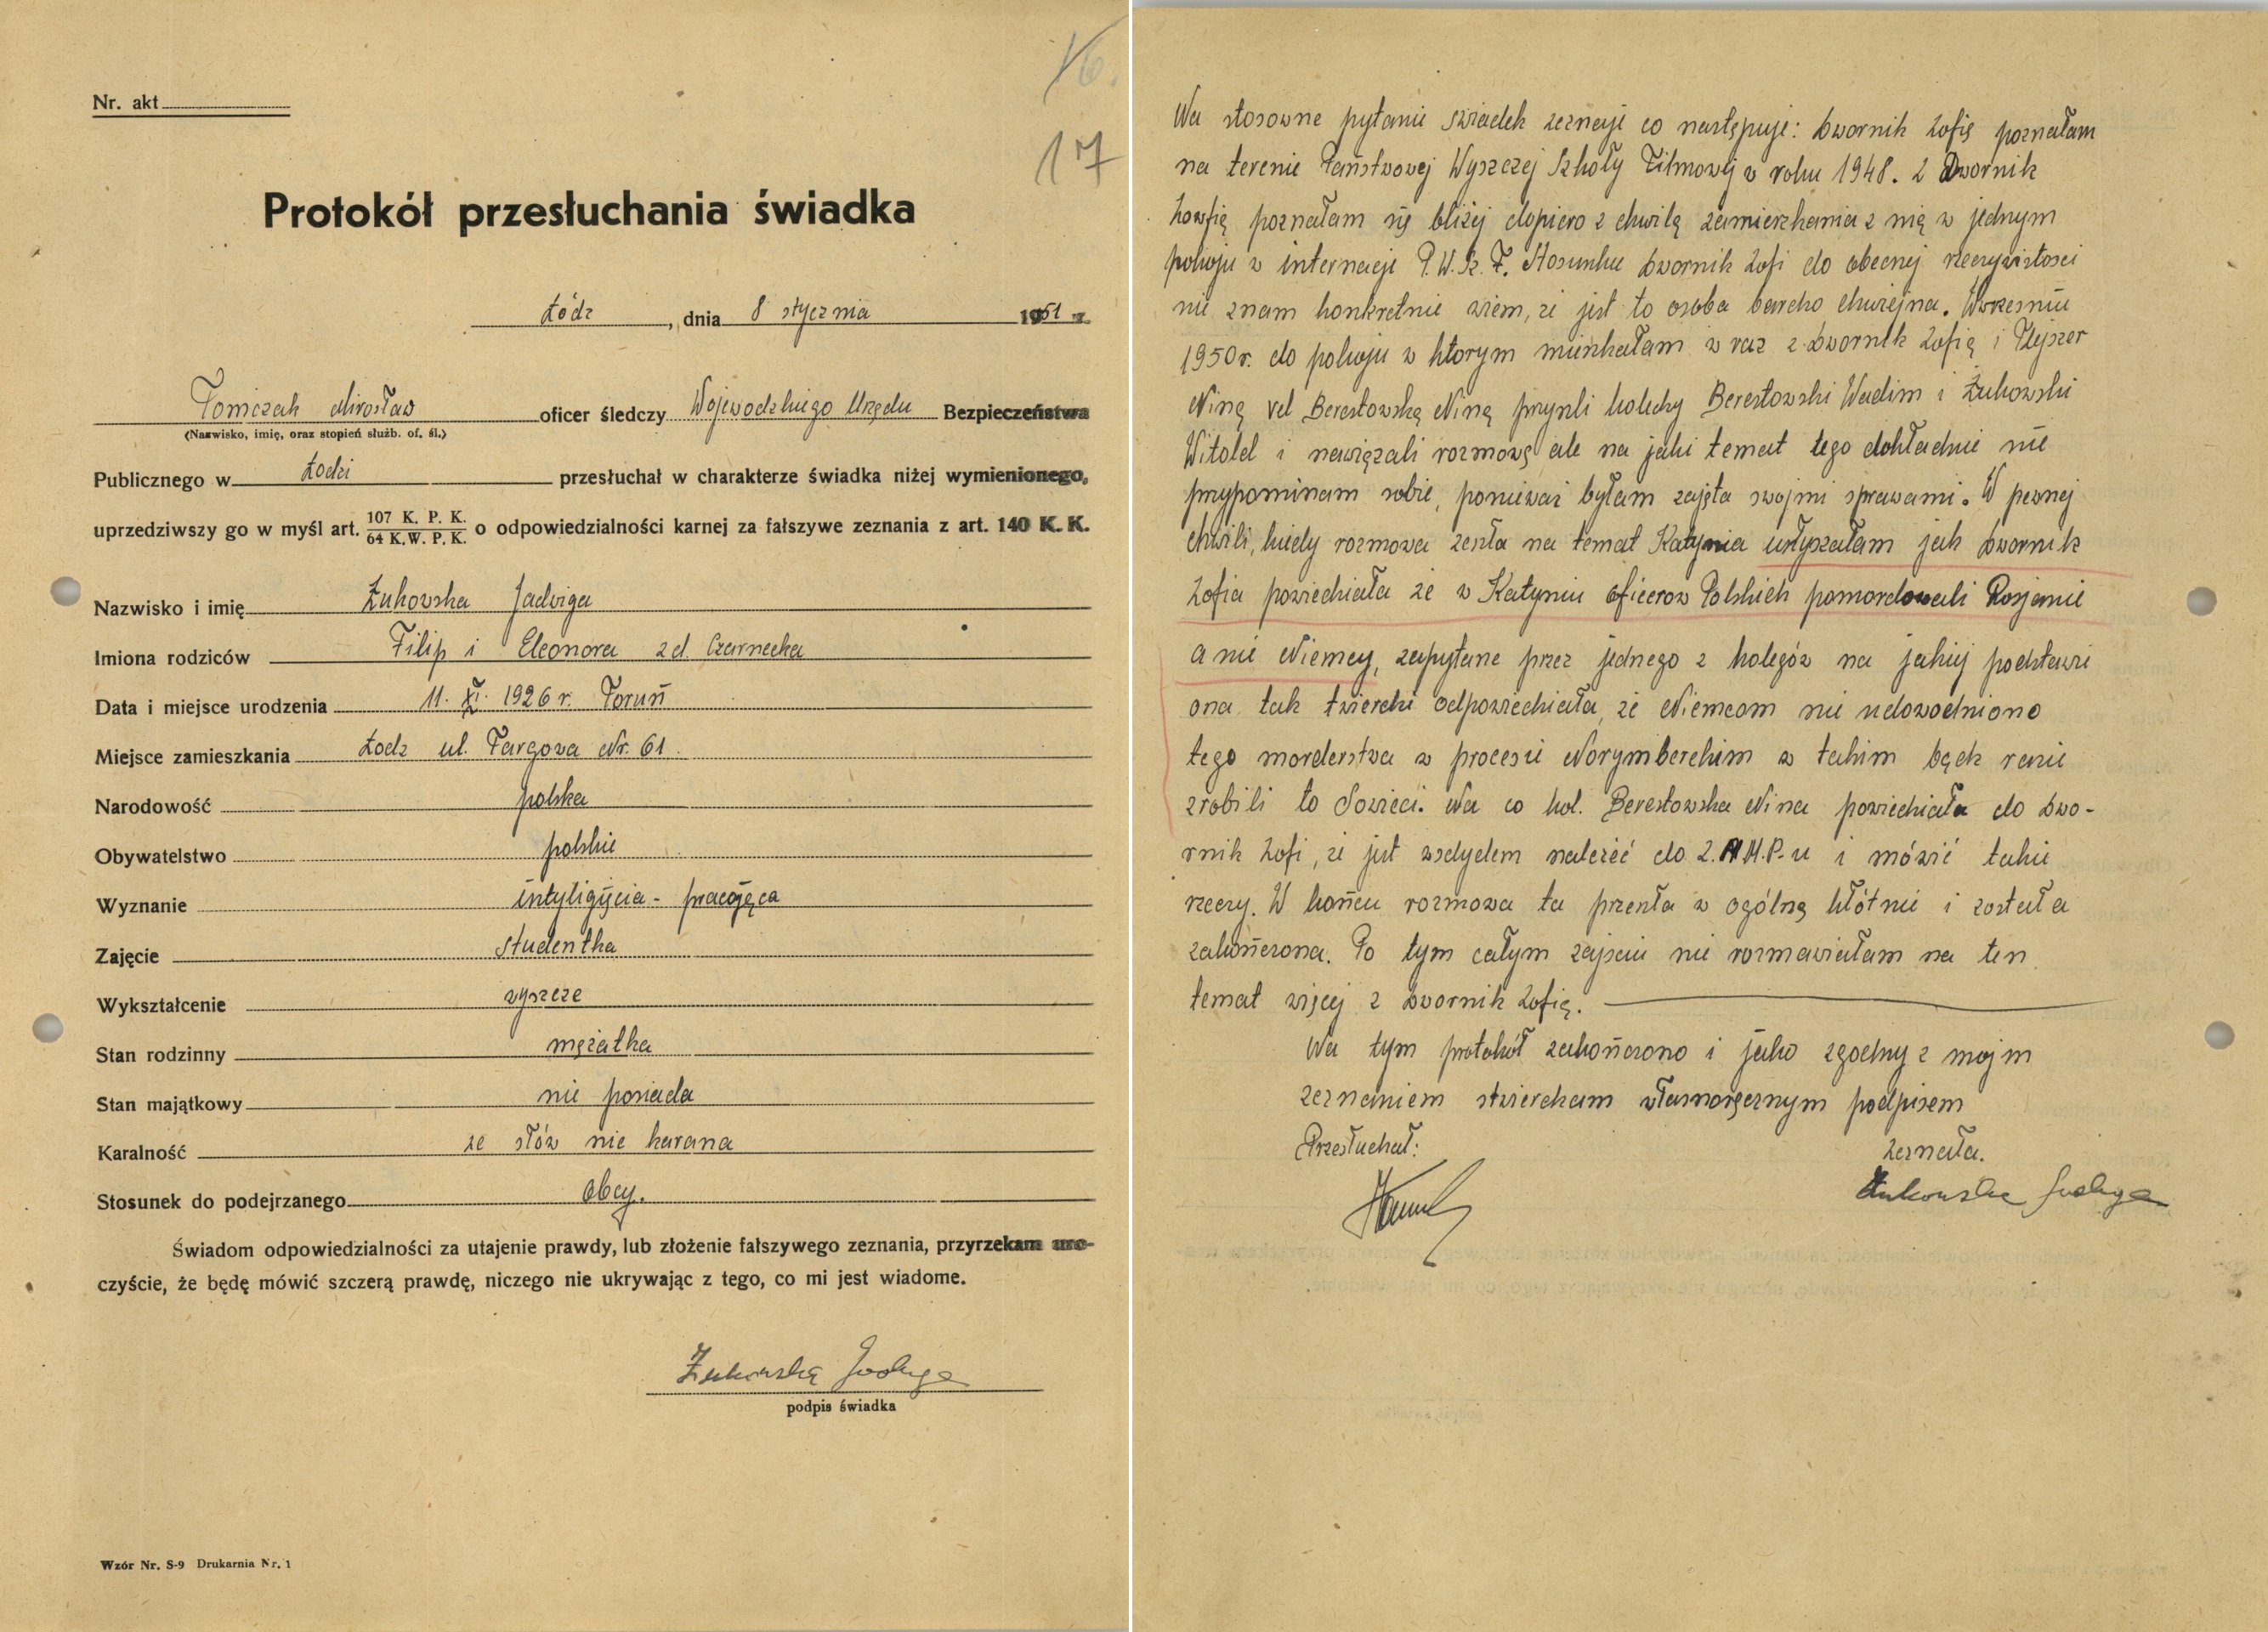 16.
17
Nr. akt
Protokół przesłuchania świadka
Łódz, dnia 8 stycznia 1951 r.
Tomczak Mirosław oficer śledczy Wojewodzkiego Urzędu Bezpieczeństwa
(Nazwisko, imię, oraz stopień służb. of. śl.)
Publicznego w Łodzi przesłuchał w charakterze świadka niżej wymienionego,
uprzedziwszy go w myśl art. 107 K. P. K. / 64 K.W. P. K. o odpowiedzialności karnej za fałszywe zeznania z art. 140 K. K.
Nazwisko i imię Żukowska Jadwiga
Imiona rodziców Filip i Eleonora zd Czarnecka
Data i miejsce urodzenia 11. XI. 1926 r. Toruń
Miejsce zamieszkania Łodz ul. Targowa Nr. 61.
Narodowość polska
Obywatelstwo polskie
Wyznanie intyligięcia - pracojęca
Zajęcie studentka
Wykształcenie wyszcze
Stan rodzinny mężatka
Stan majątkowy nie posiada
Karalność ze słów nie karana
Stosunek do podejrzanego obcy.
Świadom odpowiedzialności za utajenie prawdy, lub złożenie fałszywego zeznania, przyrzekam uro-
czyście, że będę mówić szczerą prawdę, niczego nie ukrywając z tego, co mi jest wiadome.
Żukowska Jadwiga
podpis świadka
Wzór Nr. S-9 Drukarnia Nr. 1
Na stosowne pytanie swiadek zeznaje co następuje: Dwornik Zofię poznałam
na terenie Państwowej Wyszczej Szkoły Filmowej w roku 1948. Z Dwornik
Zowfię poznałam się bliżej dopiero z chwilą zamieszkania z nią w jednym
pokoju w internacie P.W.Sz.F. Stosunku Dwornik Zofi do obecnej rzeczywistosci
nie znam konkretnie wiem, że jest to osoba bardzo chwiejna. Wrzesniu
1950 r. do pokoju w ktorym mieszkałam w raz z Dwornik Zofią i Flejszer
Niną vel Berestowską Niną przyszli koledzy Berestowski Wadim i Żukowski
Witold i nawiązali rozmowę ale na jaki temat tego dokładnie nie
przypominam sobie, ponieważ byłam zajęta swojmi sprawami. W pewnej
chwili, kiedy rozmowa zeszła na temat Katynia usłyszałam jak Dwornik
Zofia powiedziała że w Katyniu oficerow Polskich pomordowali Rosjanie
a nie Niemcy, zapytane przez jednego z kolegów na jakiej podstawi
ona tak twierdzi odpowiedziała, że Niemcom nie udowodniono
tego morderstwa w procesie Norymberskim w takim bądz rasie
zrobili to Sowieci. Na co kol. Berestowska Nina powiedziała do Dwo-
rnik Zofi, że jest wsdydem należeć do Z.M.P-u i mówić takie
rzeczy. W końcu rozmowa ta przeszła w ogólną kłótnie i została
zakończona. Po tym całym zajsciu nie rozmawiałam na ten
temat więcej z Dwornik Zofią.
Na tym protokół zakończono i jako zgodny z mojm
zeznaniem stwierdzam własnoręcznym podpisem
Przesłuchał: Zeznała.
Żukowska Jadwiga